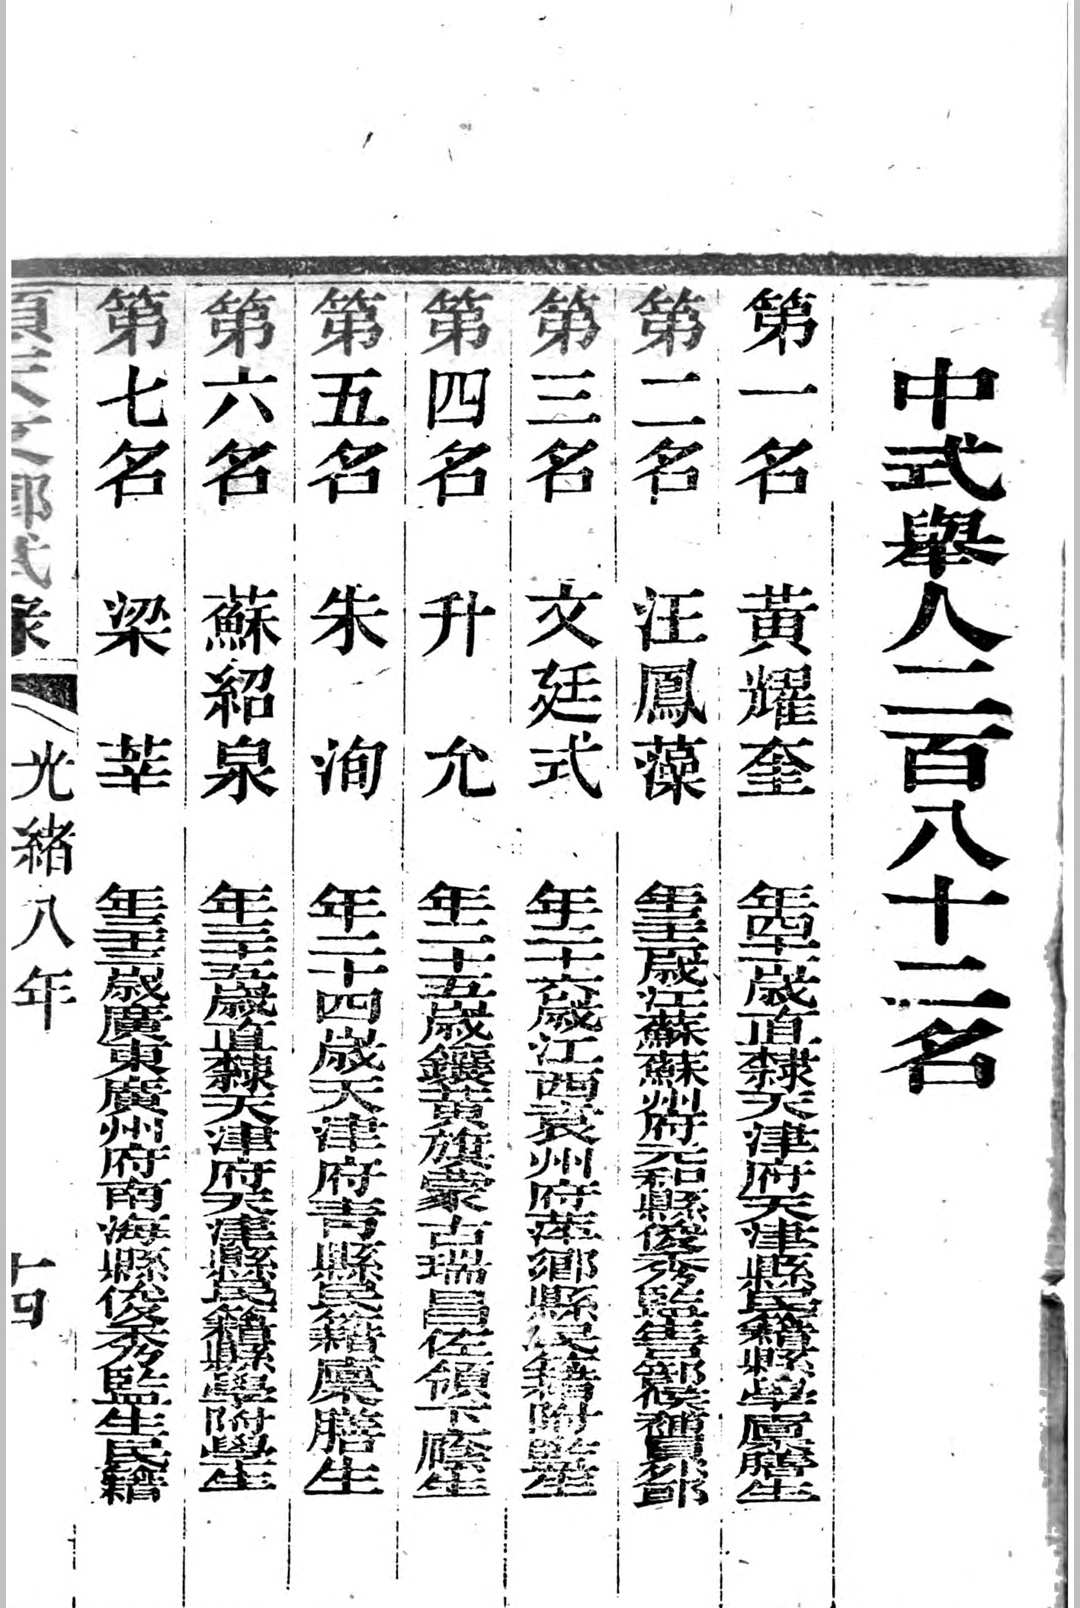 中式舉人二百八十二名
第一名 黃耀奎 年四十歲直隸天津府天津縣民籍縣學廩膳生
第二名 汪鳳藻 年三十歲江蘇蘇州府元和縣俊秀監生戶部候補員外郎
第三名 文廷式 年二十六歲江西袁州府萍鄉縣民籍附監生
第四名 升允 年二十五歲鑲黃旗蒙古瑞昌佐領下廕生
第五名 朱洵 年二十四歲天津府青縣民籍廩膳生
第六名 蘇紹泉 年三十五歲直隸天津府天津縣民籍縣學附學生
第七名 梁莘 年三十三歲廣東廣州府南海縣俊秀監生民籍
順天文鄉試錄 光緒八年 十四